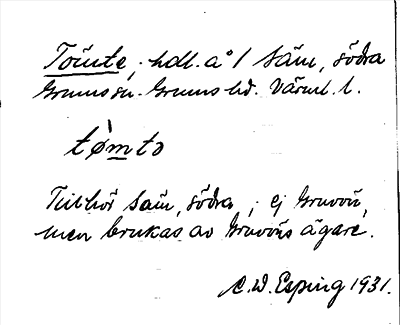 Tömte, hdl. a° 1 Säm, södra
Grums sn. Grums hd. Värml. l.
tø̀mtə
Tillhör Säm, södra, ej Gruvön,
men brukas av Gruvöns ägare.
C.W. Esping 1931.